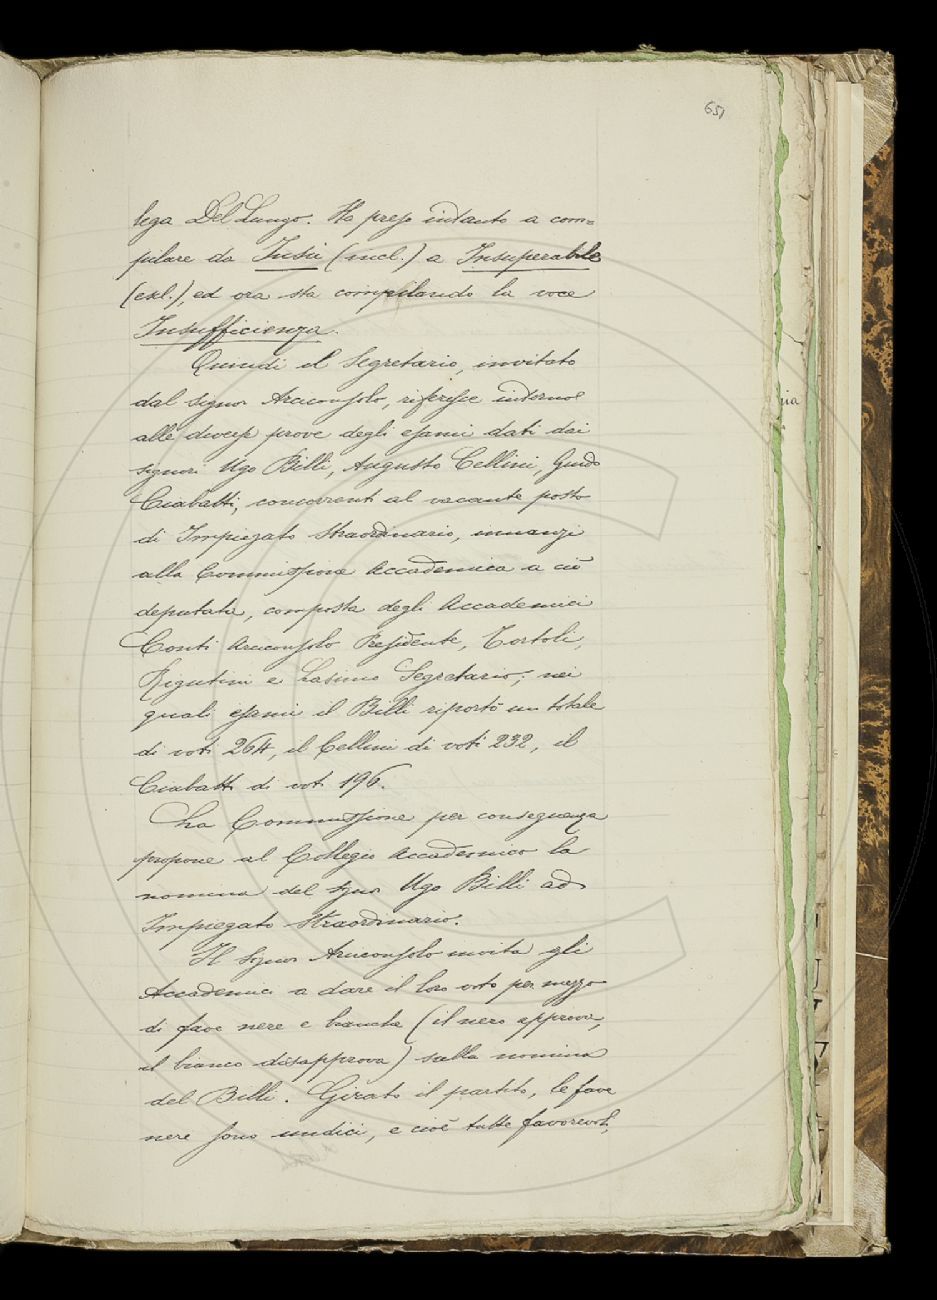 651
lega Del Lungo. Ha preso intanto a com=
pilare da Insù (incl.) a Insuperabile
(escl.), ed ora sta compilando la voce
Insufficienza.
Quindi il Segretario, invitato
dal signor Arciconsolo, riferisce intorno
alle diverse prove degli esami dati dai
signori Ugo Billi, Augusto Cellini, Guido
Ciabatti, concorrenti al vacante posto
di Impiegato Straordinario, innanzi
alla Commissione Accademica a ciò
deputata, composta degli Accademici
Conti Arciconsolo Presidente, Tortoli,
Rigutini e Lasinio Segretario; nei
quali esami il Billi riportò un totale
di voti 264, il Cellini di voti 232, il
Ciabatti di voti 196.
La Commissione per conseguenza
propone al Collegio Accademico la
nomina del signor Ugo Billi ad
Impiegato Straordinario.
Il Signor Arciconsolo invita gli
Accademici a dare il loro voto per mezzo
di fave nere e bianche (il nero approva,
il bianco disapprova) sulla nomina
del Billi. Girato il partito, le fave
nere sono undici, e cioè tutte favorevoli,
ia